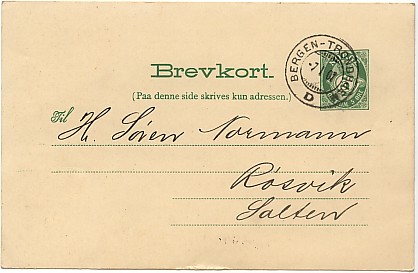 BERGEN-TRONDHJEM
D
Brevkort.
(Paa denne side skrives kun adressen.)
Til
H. Søren Normann
Røsvik
Salten